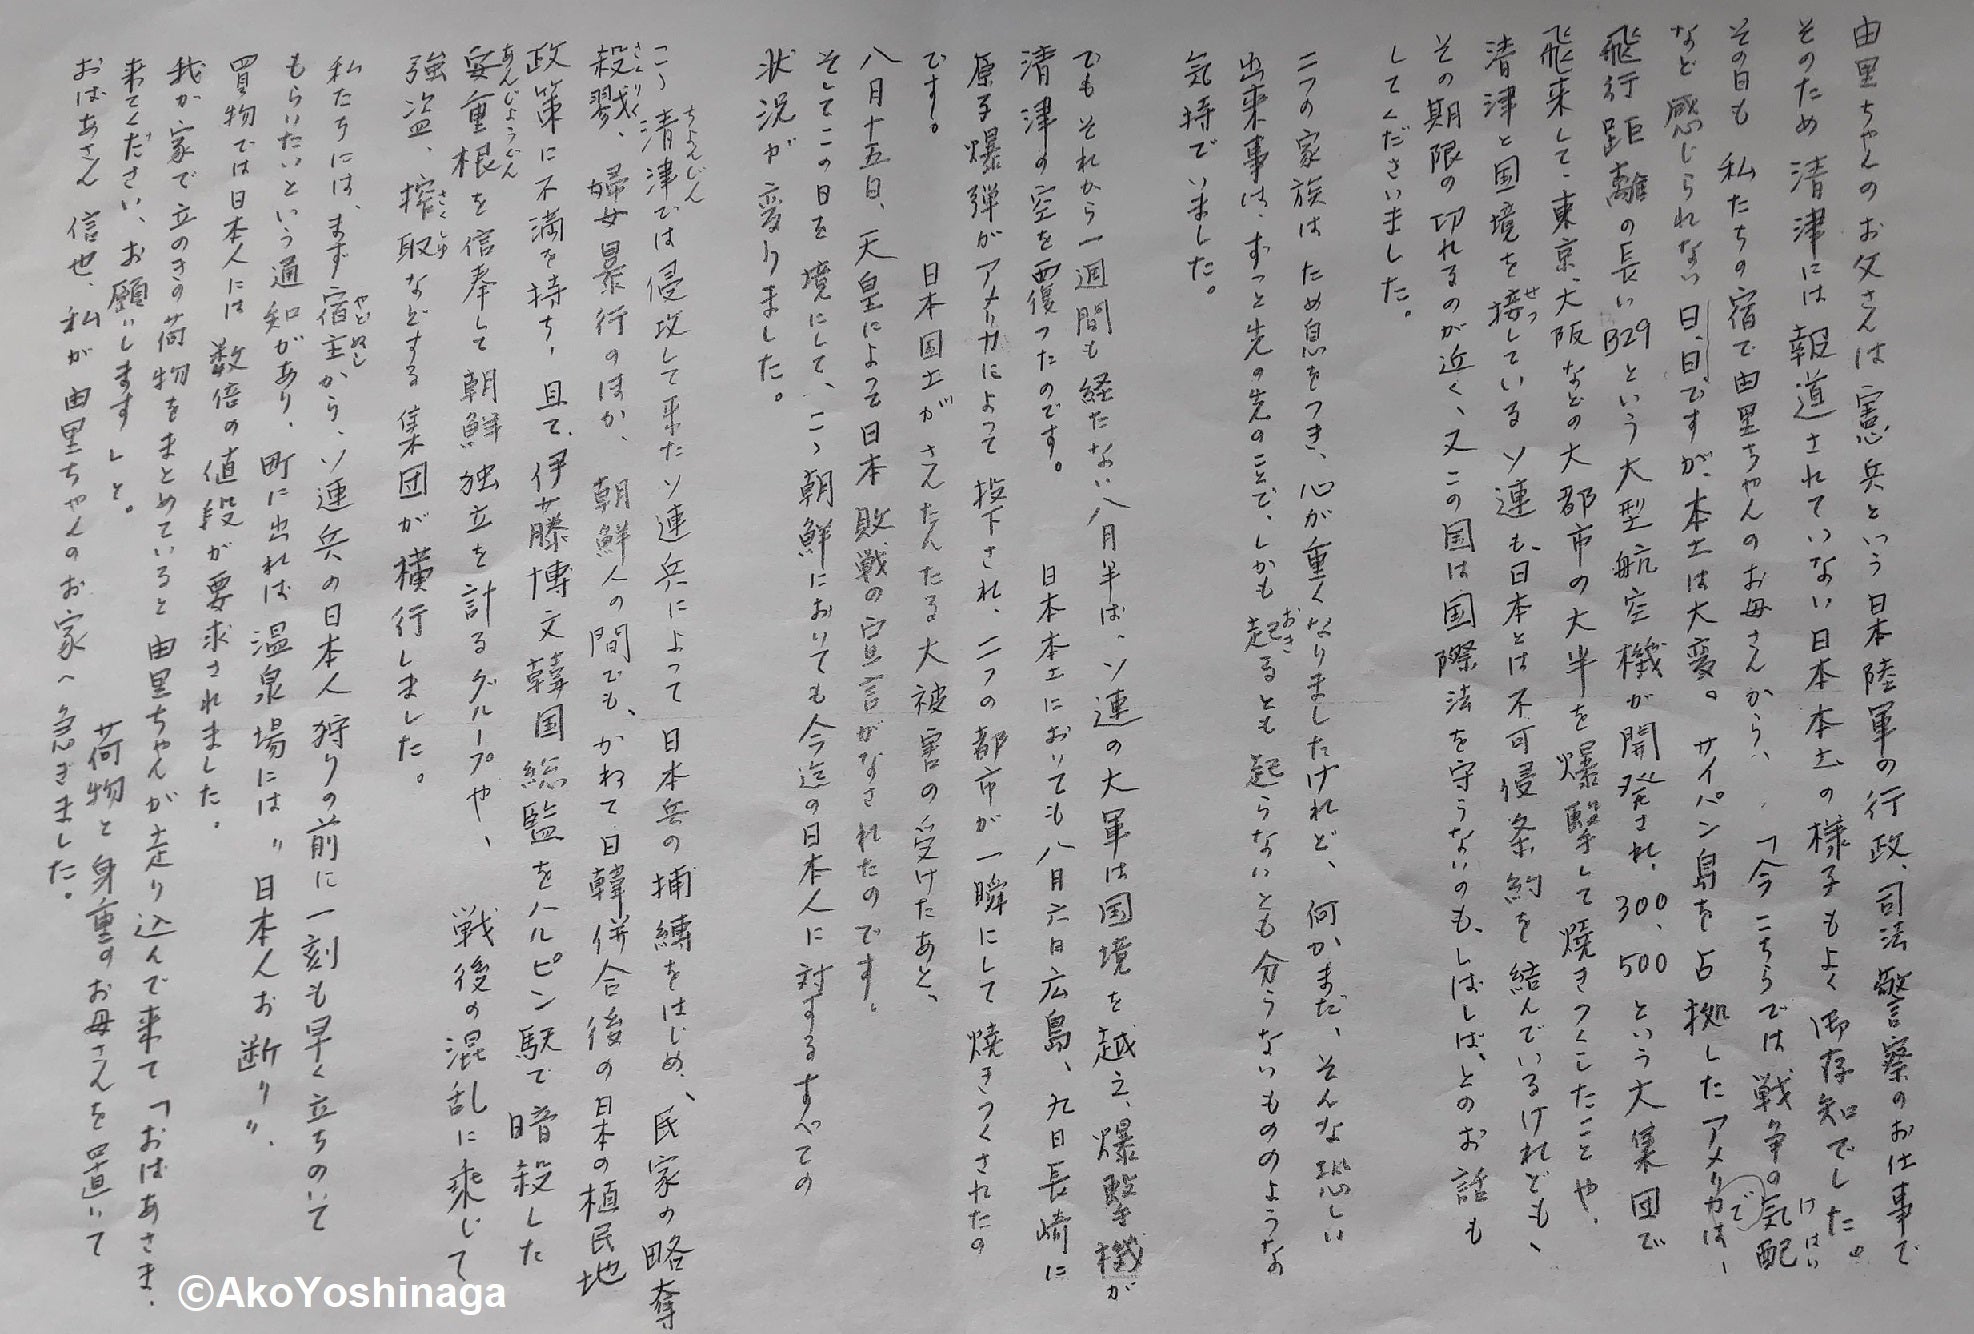 由里ちゃんのお父さんは憲兵という日本陸軍の行政、司法警察のお仕事で
そのため清津には報道されていない日本本土の様子もよく御存知でした。
その日も私たちの宿で由里ちゃんのお母さんから、「今こちらでは戦争の気配
けはい
など感じられない日、日ですが、本土は大変。サイパン島を占拠したアメリカは、
で
飛行距離の長いB29という大型航空機が開発され、300、500という大集団で
飛来して、東京、大阪などの大都市の大半を爆撃して焼きつくしたことや、
清津と国境を接しているソ連も、日本とは不可侵条約を結んでいるけれども、
せつ
その期限の切れるのが近く、又この国は国際法を守らないのも、しばしば、とのお話も
してくださいました。
二つの家族はため息をつき、心が重くなりましたけれど、何かまだ、そんな恐しい
出来事は、ずっと先の先のことで、しかも起るとも起らないとも分らないもののような
おき
気持でいました。
でもそれから一週間も経たない八月半ば、ソ連の大軍は国境を越え、爆撃機が
清津の空を覆ったのです。日本本土においても八月六日広島、九日長崎に
原子爆弾がアメリカによって投下され、二つの都市が一瞬にして焼きつくされたの
です。日本国土がさんたんたる大被害の受けたあと、
八月十五日、天皇によって日本敗戦の宣言がなされたのです。
そしてこの日を境にして、こゝ朝鮮においても今迄の日本人に対するすべての
状況が変りました。
こゝ清津では侵攻して来たソ連兵によって日本兵の捕縛をはじめ、民家の略奪
ちょんじん
殺戮、婦女暴行のほか、朝鮮人の間でも、かねて日韓併合後の日本の植民地
さくりく
政策に不満を持ち、且て、伊藤博文韓国総監をハルピン駅で暗殺した
安重根を信奉して朝鮮独立を計るグループや、戦後の混乱に乗じて
あんじょうこん
強盗、搾取などする集団が横行しました。
さくしゅ
私たちには、まず宿主から、ソ連兵の日本人狩りの前に一刻も早く立ちのいて
やどぬし
もらいたいという通知があり、町に出れば温泉場には〃日本人お断り〃、
買物では日本人には数倍の値段が要求されました。
我が家で立のきの荷物をまとめていると由里ちゃんが走り込んで来て「おばあさま、
来てください、お願いします」と。荷物と身重のお母さんを置いて
おばあさん信也、私が由里ちゃんのお家へ急ぎました。
©AkoYoshinaga